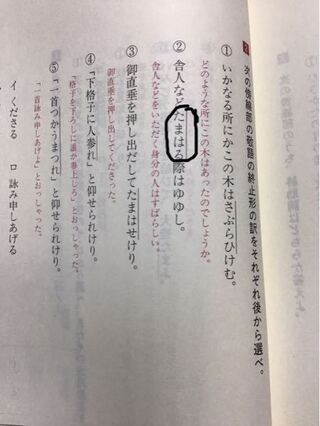 次の傍線部の敬語の終止形の訳をそれぞれ後から選べ。
① いかなる所にかこの木はさぶらひけむ。
どのような所にこの木はあったのでしょうか。
② 舎人などたまはる際はゆゆし。
舎人などをいただく身分の人はすばらしい。
③ 御直垂を押し出だしてたまはせけり。
御直垂を押し出してくださった。
④ 「下格子に人参れ」と仰せられけり。
「格子を下ろしに誰か参上しろ」とおっしゃった。
⑤ 「一首つかうまつれ」と仰せられけり。
「一首詠み申しあげよ」とおっしゃった。
イ くださる　ロ 詠み申しあげる